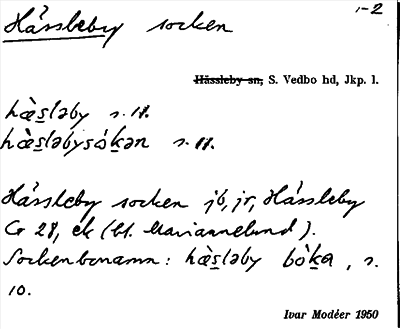 Hässleby socken 1-2
Hässleby sn, S. Vedbo hd, Jkp. l.
hàs̲ləby s. 11.
hàs̲ləbysók̲ən s. 11.
Hässleby socken jb, jr, Hässleby
Gr 28, ek (bl. Mariannelund).
Sockenbonamn: hàs̲ləby bòk̲a, s.
10.
Ivar Modéer 1950